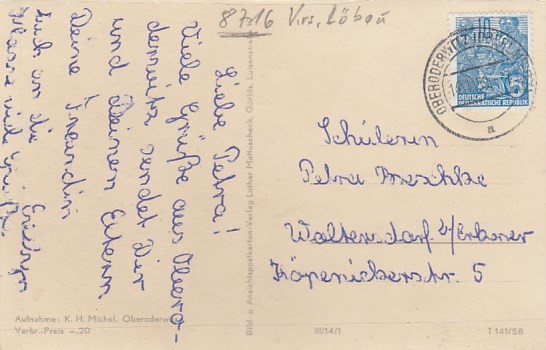 8716 Krs. Löbau
Liebe Petra!
Viele Grüße aus Obero-
derwitz sendet Dir
und Deinen Eltern
Deine Freundin
Auch an die
Klasse viele Grüße
10
DEUTSCHE
DEMOKRATISCHE REPUBLIK
OBERODERWITZ (OBERL
a
Schülerin
Petra Meschke
Waltersdorf b/Erkner
Köpenickerstr. 5
Bild- u. Ansichtspostkarten-Verlag Lothar Mattuscheck, Görlitz, Luisenstr.
Aufnahme: K. H. Michel, Oberoderwitz
Verbr.-Preis -,20
III/14/1
T 141/58